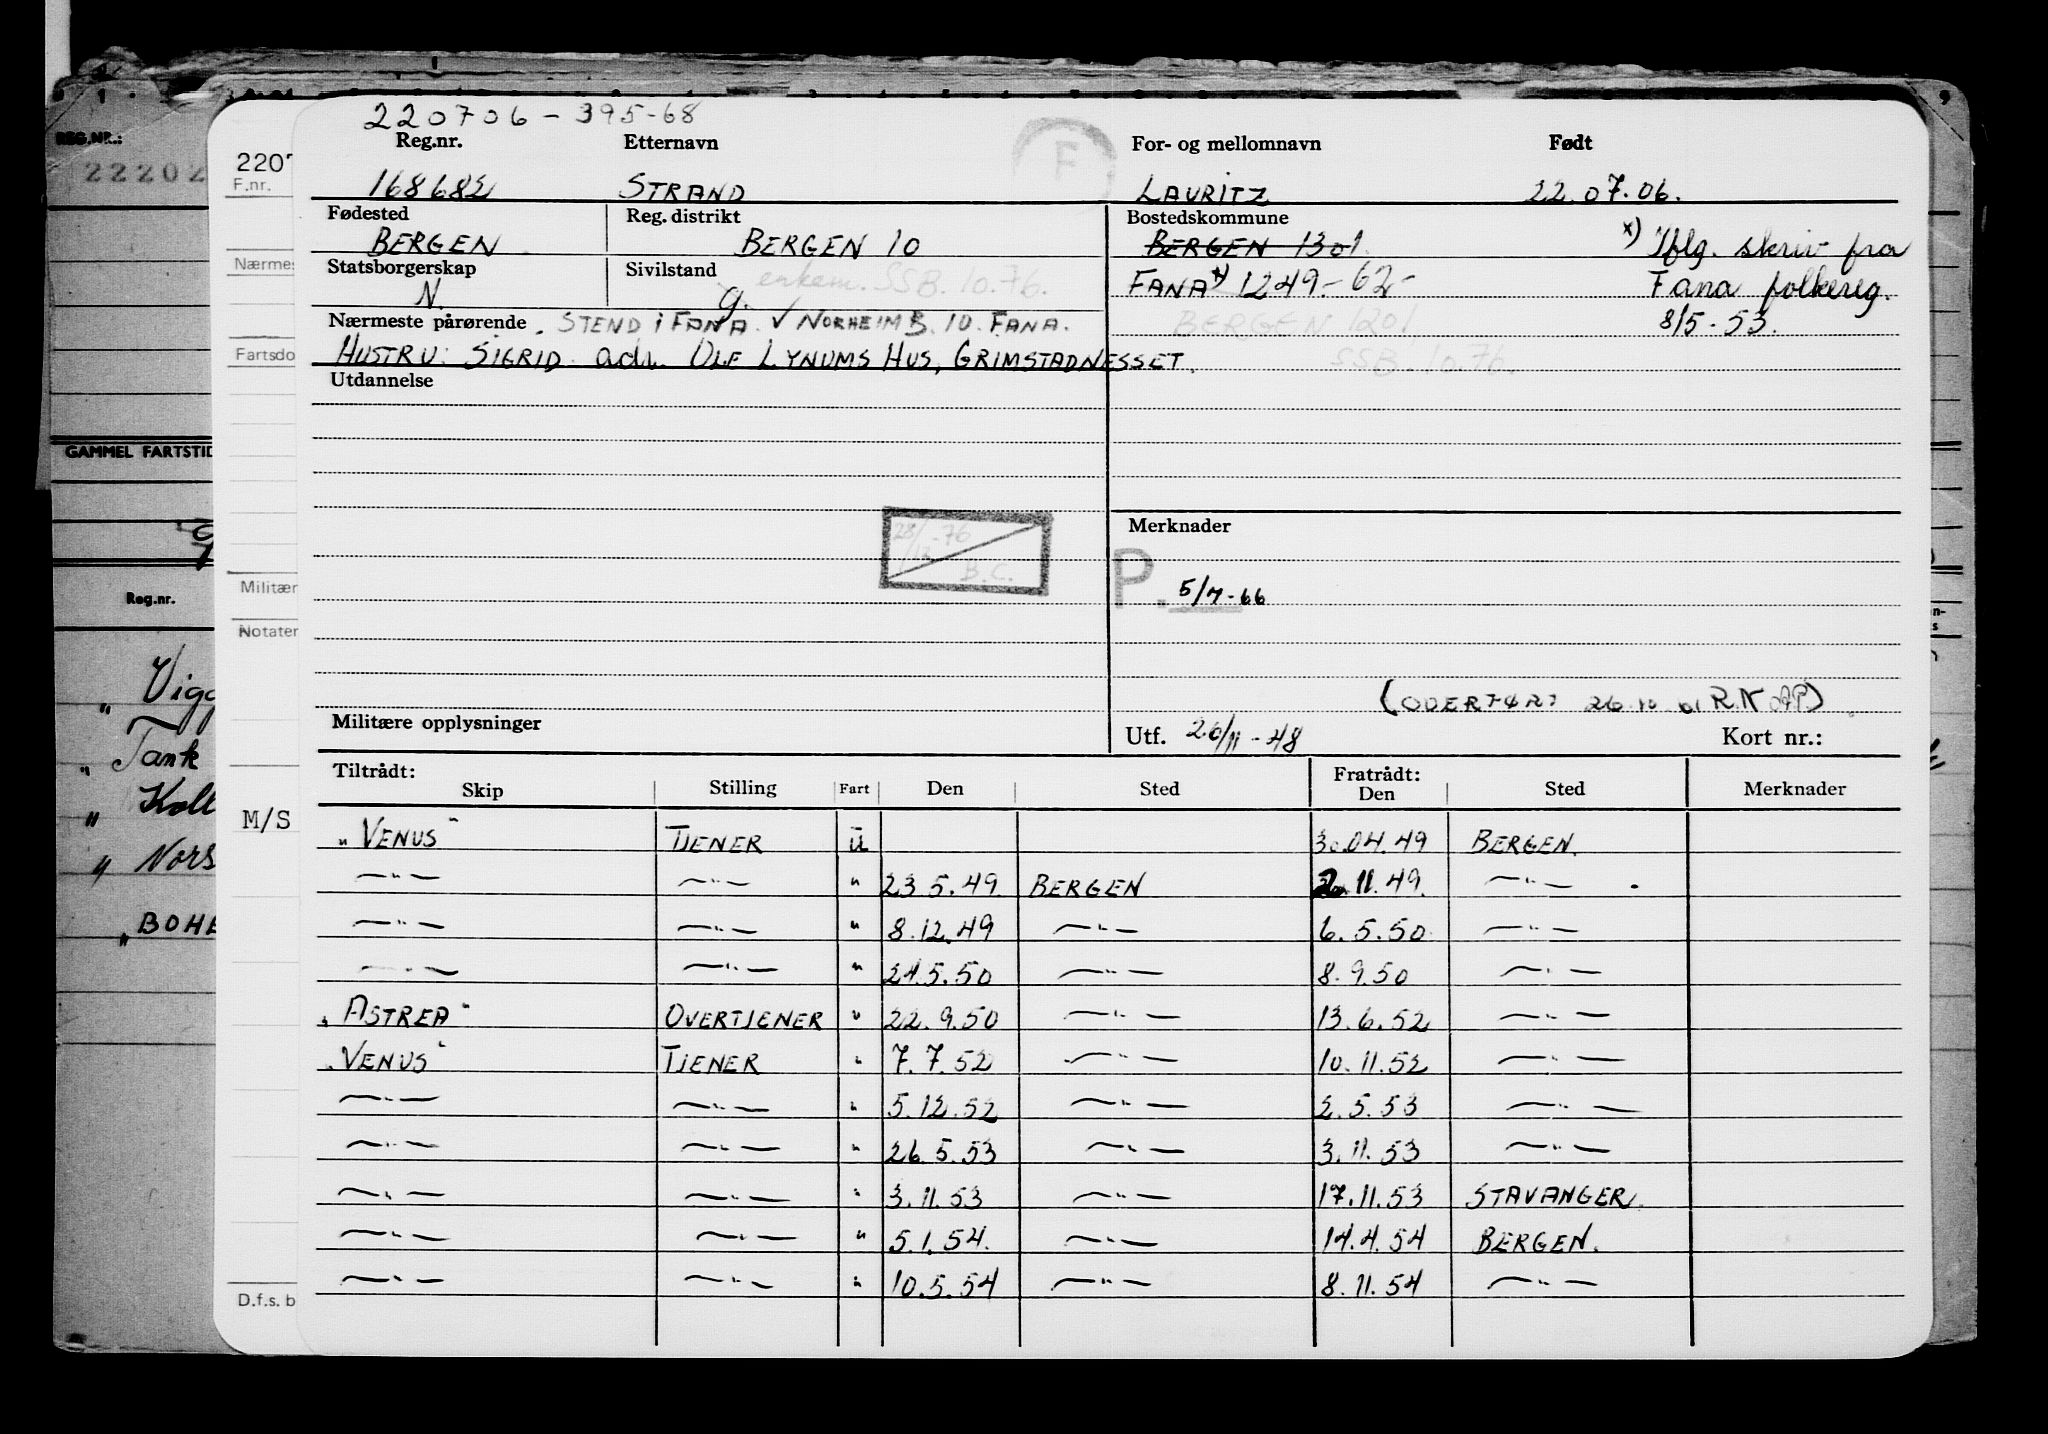 220706-395-68
Reg.nr. Etternavn For- og mellomnavn Født
168682 STRAND LAURITZ 22.07.06.
F
Fødested Reg. distrikt Bostedskommune
BERGEN BERGEN 10 BERGEN 1301 x) Iflg. skriv fra
Statsborgerskap Sivilstand enkem. SSB. 10.76. FANA x) 1249.-62- Fana folkereg.
N. g. 8/5-53.
Nærmeste pårørende STEND i FANA. NORHEIM B. 10. FANA. BERGEN 1201
HUSTRU: SIGRID adr. OLE LYNUMS HUS, GRIMSTADNESSET. SSB. 10.76.
Utdannelse
28/12-76
B.C.
Merknader
P. 5/7-66
(OVERFØRT 26.10.01 R.N AP)
Militære opplysninger Utf. 26/11-48 Kort nr.:
Tiltrådt: Fratrådt:
Skip Stilling Fart Den Sted Den Sted Merknader
"VENUS" TJENER U 30.04.49 BERGEN.
—"— —"— " 23.5.49 BERGEN 2.11.49. —"—
—"— —"— " 8.12.49 —"— 6.5.50 —"—
—"— —"— " 24.5.50 —"— 8.9.50 —"—
"ASTREA" OVERTJENER " 22.9.50 —"— 13.6.52 —"—
"VENUS" TJENER " 7.7.52 —"— 10.11.52 —"—
—"— —"— " 5.12.52 —"— 2.5.53 —"—
—"— —"— " 26.5.53 —"— 3.11.53 —"—
—"— —"— " 3.11.53 —"— 17.11.53 STAVANGER.
—"— —"— " 5.1.54. —"— 14.4.54 BERGEN.
—"— —"— " 10.5.54 —"— 8.11.54 —"—
2207
F.nr.
Nærmes
Fartsdo
Militær
Notater
M/S
D.f.s. b
REG.NR.:
22202
GAMMEL FARTSTID
Reg.nr.
" Vigg
" Tank
" Koll
" Nors
" BOHE